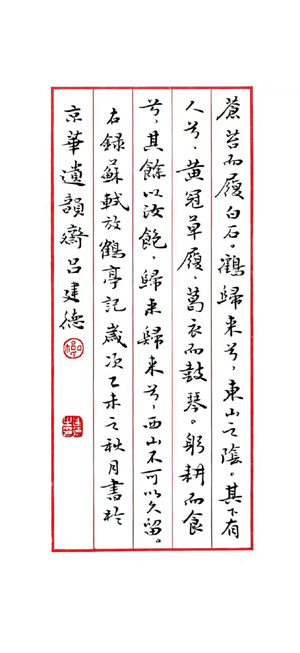 蒼苔而履白石。鶴歸来兮，東山之陰。其下有
人兮，黄冠草履，葛衣而鼓琴。躬耕而食
兮，其餘以汝飽，歸来歸来兮，西山不可以久留。
右録蘇軾放鶴亭記歲次乙未之秋月書於
京華遺韻齋呂建德